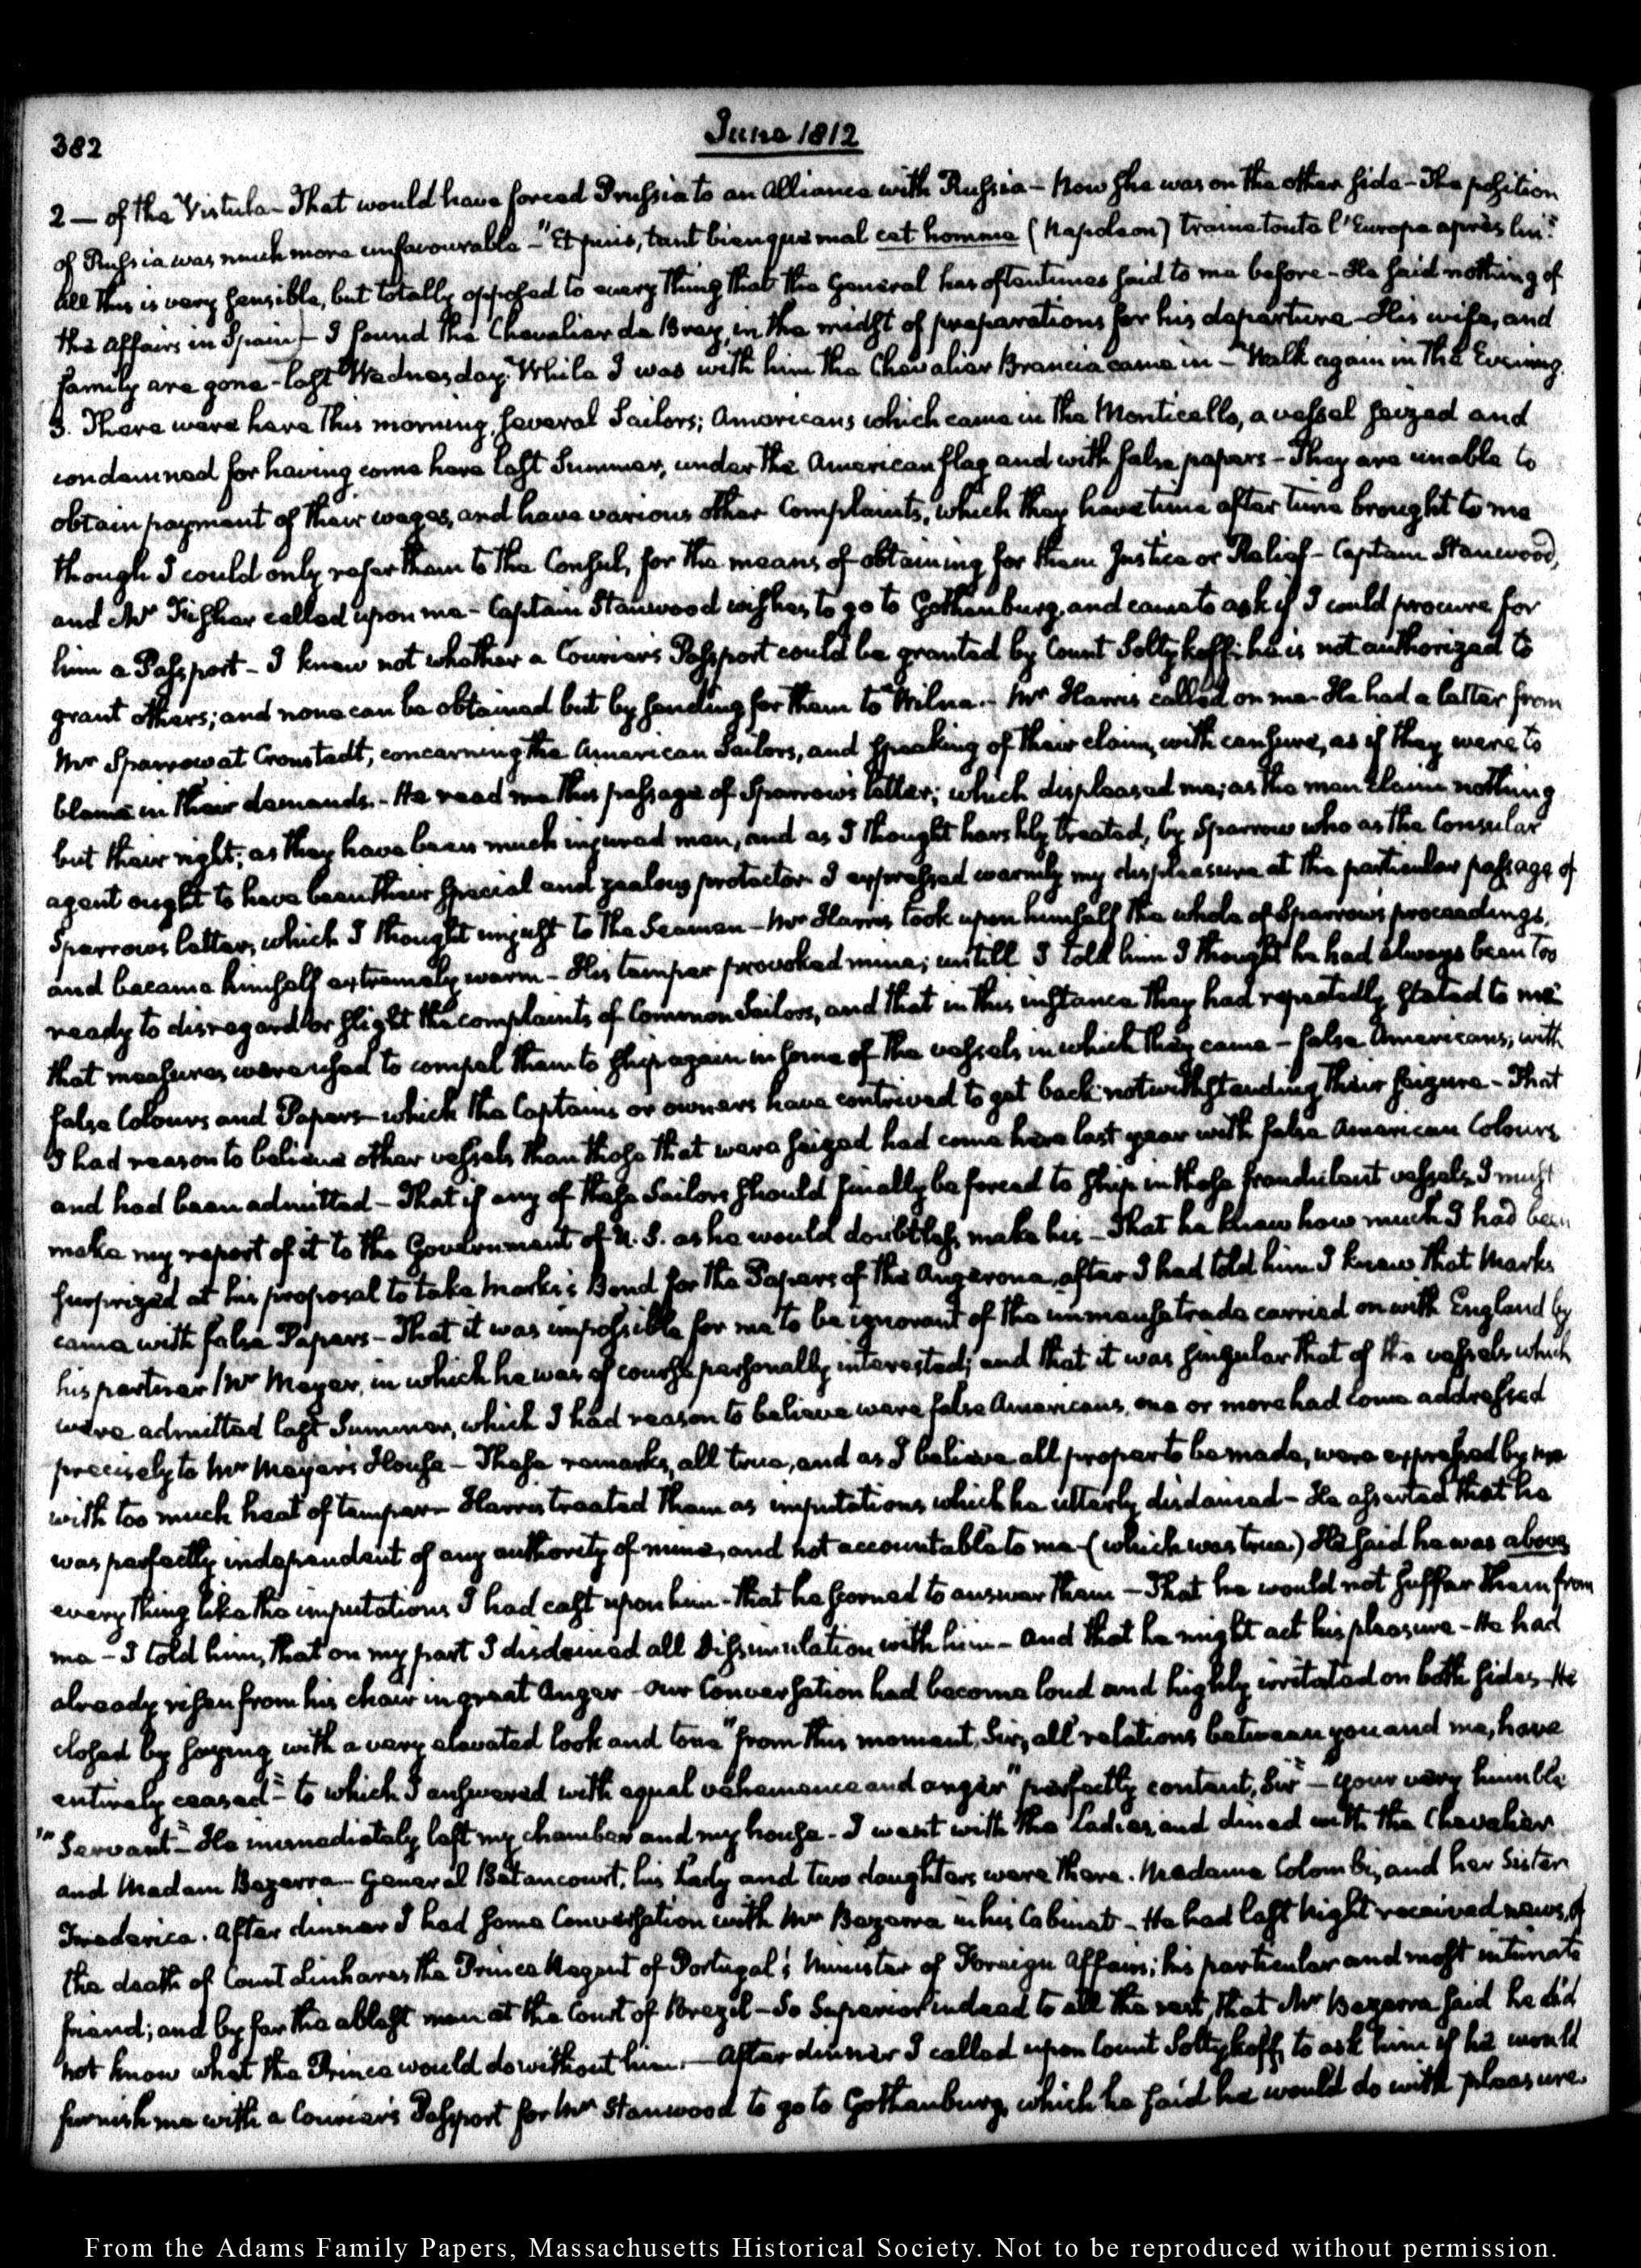 382
June 1812
2 — of the Vistula - That would have forced Prussia to an Alliance with Russia - Now she was on the other side - The position
of Russia was much more unfavourable - "Et puis, tant bien que mal cet homme (Napoleon) traine toute l'Europe après lui."
All this is very sensible, but totally opposed to every thing that the General has oftentimes said to me before - He said nothing of
the affairs in Spain - I found the Chevalier de Bray, in the midst of preparations for his departure - His wife, and
family are gone - last Wednesday. While I was with him the Chevalier Brancia came in - Walk again in the Evening.
3. There were here this morning, several Sailors; Americans which came in the Monticello, a vessel seized and
condemned for having come here last Summer, under the American flag and with false papers - They are unable to
obtain payment of their wages, and have various other Complaints, which they have time after time brought to me
though I could only refer them to the Consul, for the means of obtaining for them Justice or Relief - Captain Stanwood,
and Mr Fisher called upon me - Captain Stanwood wishes to go to Gothenburg, and came to ask if I could procure for
him a Passport - I knew not whether a Courier's Passport could be granted by Count Soltykoff; he is not authorized to
grant others; and none can be obtained but by sending for them to Wilna. - Mr Harris called on me - He had a letter from
Mr Sparrow at Cronstadt, concerning the American Sailors, and speaking of their claim, with censure, as if they were to
blame in their demands. - He read me this passage of Sparrow's letter; which displeased me; as the men claim nothing
but their right; as they have been much injured men, and as I thought harshly treated, by Sparrow who as the Consular
agent ought to have been their special and zealous protector - I expressed warmly my displeasure at the particular passage of
Sparrows letter, which I thought unjust to the Seamen - Mr Harris took upon himself the whole of Sparrow's proceedings,
and became himself extremely warm - His temper provoked mine; untill I told him I thought he had always been too
ready to disregard or slight the complaints of Common Sailors, and that in this instance they had repeatedly stated to me
that measures were used to compel them to ship again in some of the vessels in which they came - false Americans; with
false Colours and Papers - which the Captains or owners have contrived to get back notwithstanding their seizure - That
I had reason to believe other vessels than those that were seized had come here last year with false American Colours
and had been admitted - That if any of these Sailors should finally be forced to ship in those fraudulent vessels, I must
make my report of it to the Government of U. S. as he would doubtless make his - That he knew how much I had been
surprized at his proposal to take Marks's Bond for the Papers of the Angerona, after I had told him I knew that Marks
came with false Papers - That it was impossible for me to be ignorant of the immense trade carried on with England by
his partner Mr Meyer, in which he was of course personally interested; and that it was singular that of the vessels which
were admitted last Summer, which I had reason to believe were false Americans, one or more had come addressed
precisely to Mr Meyer's House - These remarks, all true, and as I believe all proper to be made, were expressed by me
with too much heat of temper - Harris treated them as imputations which he utterly disdained - He asserted that he
was perfectly independent of any authority of mine, and not accountable to me - (which was true) He said he was above
every thing like the imputations I had cast upon him - that he scorned to answer them - That he would not suffer them from
me - I told him, that on my part I disdained all Dissimulation with him - and that he might act his pleasure - He had
already risen from his chair in great Anger - Our Conversation had become loud and highly irritated on both sides - He
closed by saying with a very elevated look and tone "from this moment, Sir, all relations between you and me, have
entirely ceased" - to which I answered with equal vehemence and anger "perfectly content, Sir" - "your very humble
"Servant" - He immediately left my chamber and my house - I went with the Ladies, and dined with the Chevalier
and Madam Bezerra - General Betancourt, his Lady and two daughters were there. Madame Colombi, and her Sister
Frederica. After dinner I had some Conversation with Mr Bezerra in his Cabinet - He had last Night received news, of
the death of Count Linhares the Prince Regent of Portugal's Minister of Foreign Affairs; his particular and most intimate
friend; and by far the ablest man at the Court of Brezil - So Superior indeed to all the rest, that Mr Bezerra said he did
not know what the Prince would do without him. - After dinner I called upon Count Soltykoff, to ask him if he would
furnish me with a Courier's Passport for Mr Stanwood to go to Gothenburg, which he said he would do with pleasure.
From the Adams Family Papers, Massachusetts Historical Society. Not to be reproduced without permission.